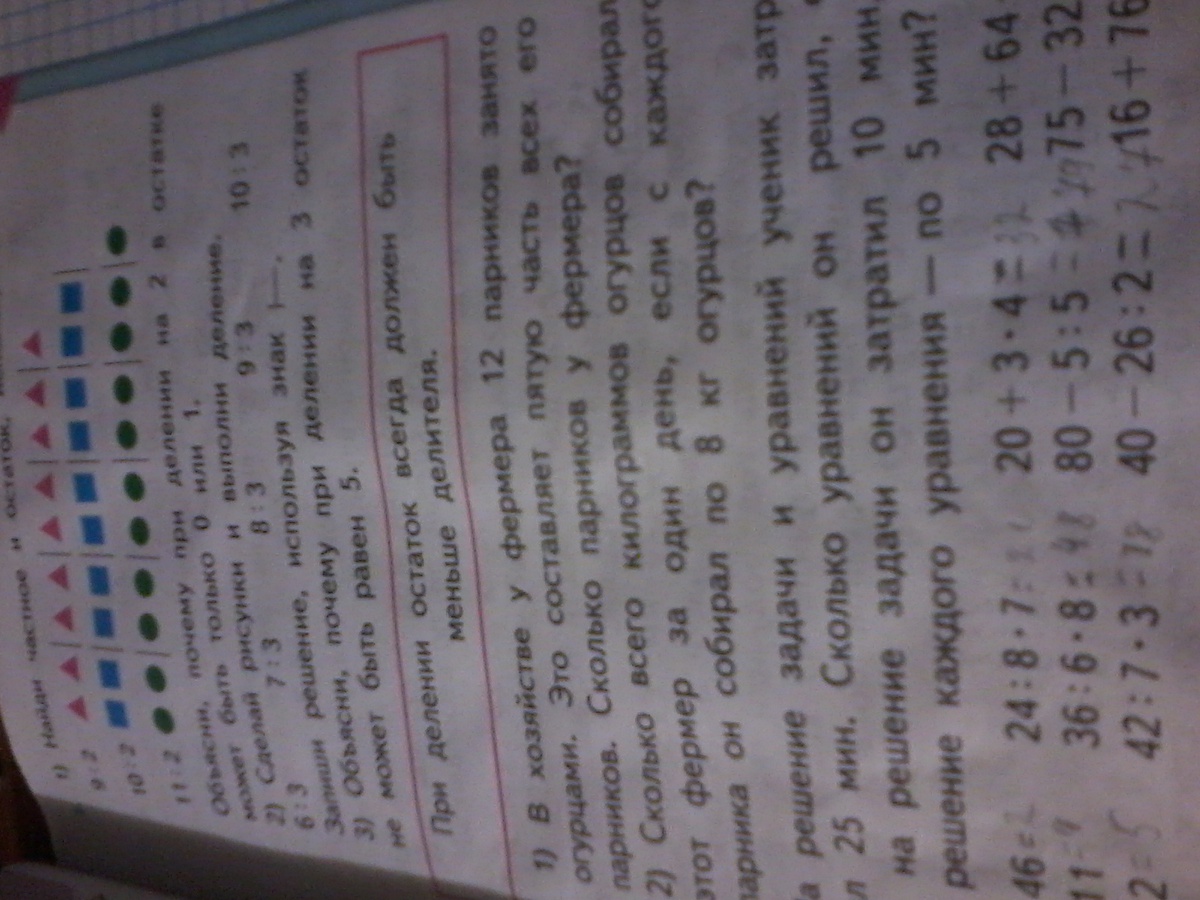 1) Найди частное и остаток,
9 : 2
10 : 2
11 : 2
Объясни, почему при делении на 2 в остатке
может быть только 0 или 1.
2) Сделай рисунки и выполни деление.
6 : 3 7 : 3 8 : 3 9 : 3 10 : 3
Запиши решение, используя знак
3) Объясни, почему при делении на 3 остаток
не может быть равен 5.
При делении остаток всегда должен быть
меньше делителя.
1) В хозяйстве у фермера 12 парников занято
огурцами. Это составляет пятую часть всех его
парников. Сколько парников у фермера?
2) Сколько всего килограммов огурцов собирал
этот фермер за один день, если с каждого
парника он собирал по 8 кг огурцов?
а решение задачи и уравнений ученик затр
л 25 мин. Сколько уравнений он решил,
на решение задачи он затратил 10 мин,
решение каждого уравнения — по 5 мин?
46 = 2 24 : 8 · 7 = 20 + 3 · 4 = 32 28 + 64
11 36 : 6 · 8 = 48 80 − 5 : 5 = 79 75 − 32
2 = 5 42 : 7 · 3 = 18 40 − 26 : 2 = 27 16 + 76